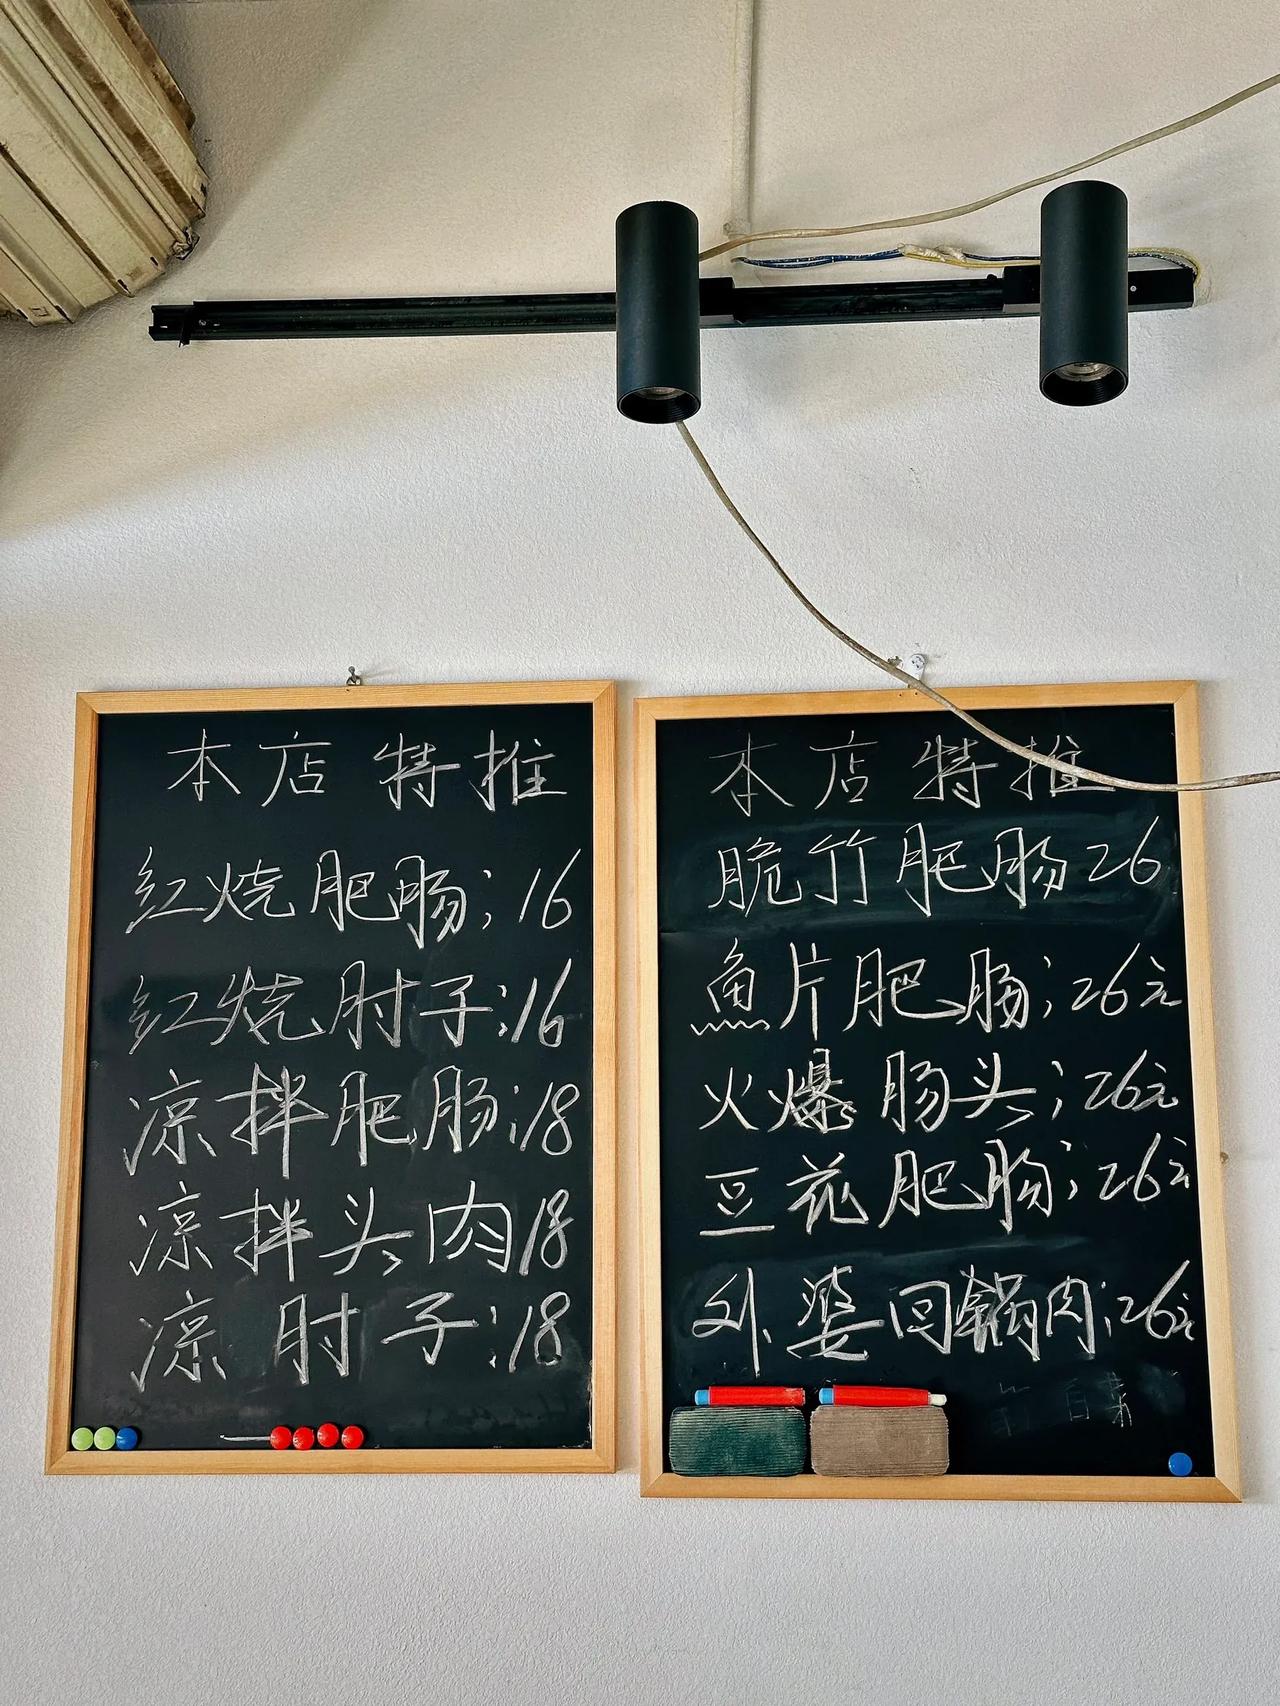 本店特推
红烧肥肠；16
红烧肘子：16
凉拌肥肠；18
凉拌头肉18
凉肘子：18
本店特推
脆竹肥肠26
魚片肥肠；26元
火爆肠头；26元
豆花肥肠；26元
外婆回锅肉；26元